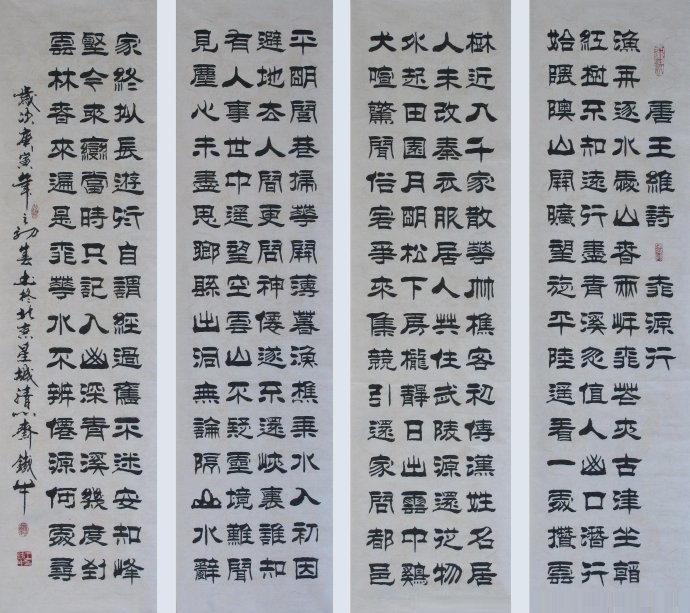 唐王維詩 桃源行
漁舟逐水愛山春兩岸桃花夾古津坐看
紅樹不知遠行盡青溪忽值人山口潛行
始隈隩山開曠望旋平陸遙看一處攢雲
樹近入千家散華竹樵客初傳漢姓名居
人未改秦衣服居人共住武陵源還從物
外起田園月明松下房櫳靜日出雲中雞
犬喧驚聞俗客爭來集競引還家問都邑
平明閭巷掃華開薄暮漁樵乘水入初因
避地去人間更問神僊遂不還峽裏誰知
有人事世中遥望空雲山不疑靈境難聞
見塵心未盡思鄉縣出洞無論隔山水辭
家終擬長遊衍自謂經過舊不迷安知峰
壑今來變當時只記入山深青溪幾度到
雲林春來遍是桃華水不辨僊源何處尋
歲次庚寅年之初春書於北京星城清心齋鐵牛